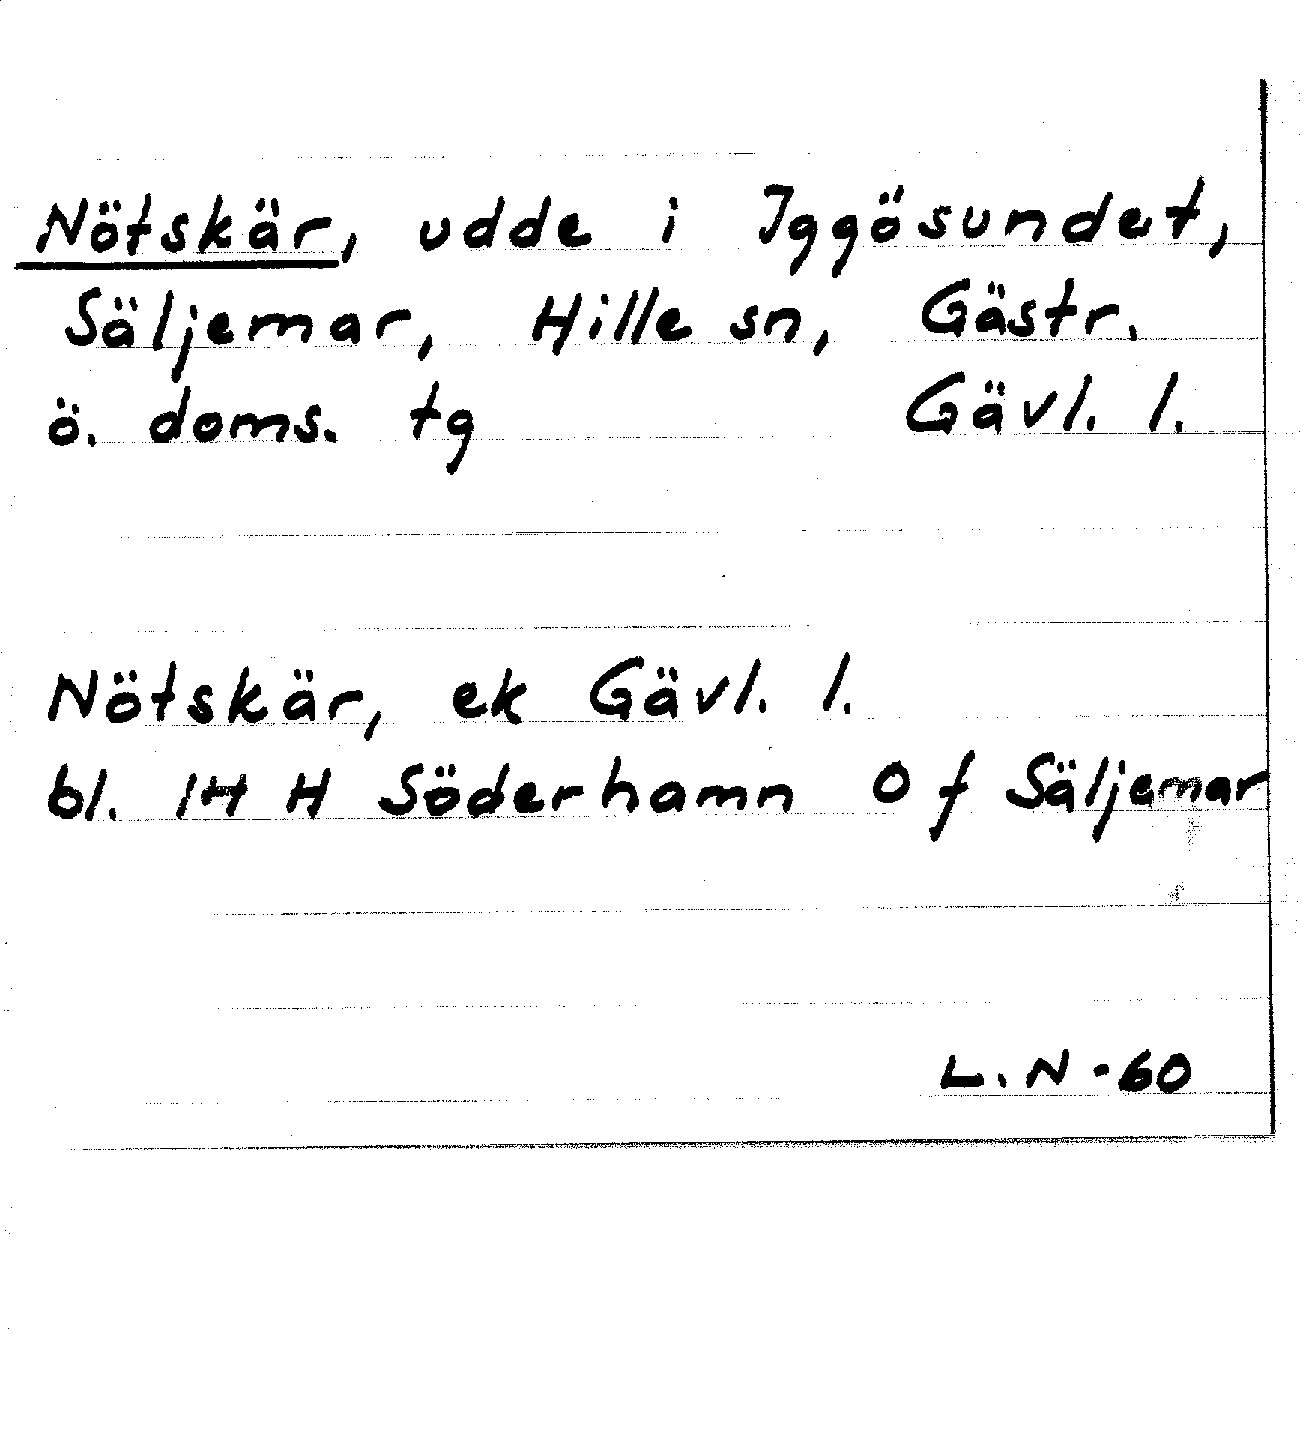 Nötskär, udde i Iggösundet,
Säljemar, Hille sn, Gästr.
ö. doms. tg Gävl. l.
Nötskär, ek Gävl. l.
bl. 14 H Söderhamn 0 f Säljemar
L.N -60